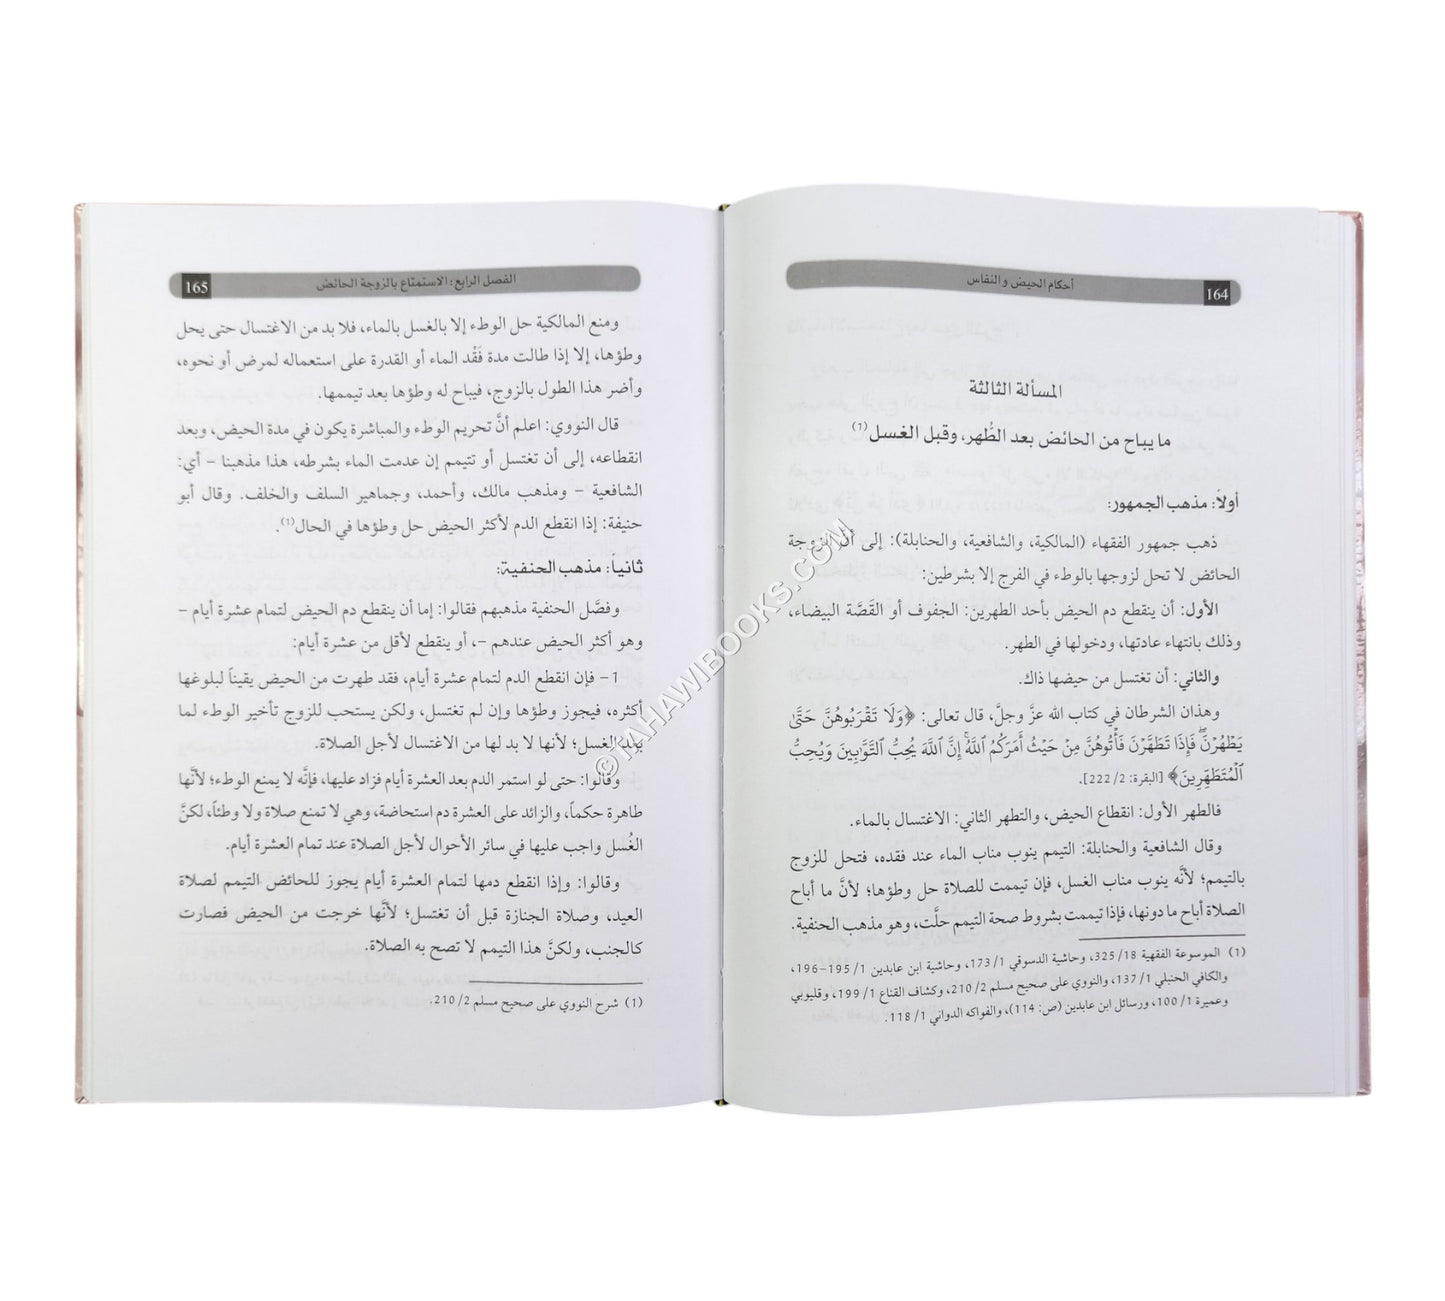 164
أحكام الحيض والنفاس
المسألة الثالثة
ما يباح من الحائض بعد الطُّهر، وقبل الغسل(1)
أولاً: مذهب الجمهور:
ذهب جمهور الفقهاء (المالكية، والشافعية، والحنابلة): إلى أنَّ الزوجة
الحائض لا تحل لزوجها بالوطء في الفرج إلا بشرطين:
الأول: أن ينقطع دم الحيض بأحد الطهرين: الجفوف أو القَصَّة البيضاء،
وذلك بانتهاء عادتها، ودخولها في الطهر.
والثاني: أن تغتسل من حيضها ذاك.
وهذان الشرطان في كتاب الله عزَّ وجلَّ، قال تعالى: ﴿وَلَا تَقْرَبُوهُنَّ حَتَّىٰ
يَطْهُرْنَ ۖ فَإِذَا تَطَهَّرْنَ فَأْتُوهُنَّ مِنْ حَيْثُ أَمَرَكُمُ اللَّهُ ۚ إِنَّ اللَّهَ يُحِبُّ التَّوَّابِينَ وَيُحِبُّ
الْمُتَطَهِّرِينَ﴾ [البقرة: 2/ 222].
فالطهر الأول: انقطاع الحيض، والتطهر الثاني: الاغتسال بالماء.
وقال الشافعية والحنابلة: التيمم ينوب مناب الماء عند فقده، فتحل للزوج
بالتيمم؛ لأنَّه ينوب مناب الغسل، فإن تيممت للصلاة حل وطؤها؛ لأنَّ ما أباح
الصلاة أباح ما دونها، فإذا تيممت بشروط صحة التيمم حلَّت، وهو مذهب الحنفية.
(1) الموسوعة الفقهية 18/ 325، وحاشية الدسوقي 1/ 173، وحاشية ابن عابدين 1/ 195-196،
والكافي الحنبلي 1/ 137، والنووي على صحيح مسلم 2/ 210، وكشاف القناع 1/ 199، وقليوبي
وعميرة 1/ 100، ورسائل ابن عابدين (ص: 114)، والفواكه الدواني 1/ 118.
الفصل الرابع: الاستمتاع بالزوجة الحائض
165
ومنع المالكية حل الوطء إلا بالغسل بالماء، فلا بد من الاغتسال حتى يحل
وطؤها، إلا إذا طالت مدة فَقْد الماء أو القدرة على استعماله لمرض أو نحوه،
وأضر هذا الطول بالزوج، فيباح له وطؤها بعد تيممها.
قال النووي: اعلم أنَّ تحريم الوطء والمباشرة يكون في مدة الحيض، وبعد
انقطاعه، إلى أن تغتسل أو تتيمم إن عدمت الماء بشرطه، هذا مذهبنا - أي:
الشافعية - ومذهب مالك، وأحمد، وجماهير السلف والخلف. وقال أبو
حنيفة: إذا انقطع الدم لأكثر الحيض حل وطؤها في الحال(1).
ثانياً: مذهب الحنفية:
وفصَّل الحنفية مذهبهم فقالوا: إما أن ينقطع دم الحيض لتمام عشرة أيام -
وهو أكثر الحيض عندهم -، أو ينقطع لأقل من عشرة أيام:
1- فإن انقطع الدم لتمام عشرة أيام، فقد طهرت من الحيض يقيناً لبلوغها
أكثره، فيجوز وطؤها وإن لم تغتسل، ولكن يستحب للزوج تأخير الوطء لما
بعد الغسل؛ لأنها لا بد لها من الاغتسال لأجل الصلاة.
وقالوا: حتى لو استمر الدم بعد العشرة أيام فزاد عليها، فإنَّه لا يمنع الوطء؛ لأنَّها
طاهرة حكماً، والزائد على العشرة دم استحاضة، وهي لا تمنع صلاة ولا وطئاً، لكنَّ
الغُسل واجب عليها في سائر الأحوال لأجل الصلاة عند تمام العشرة أيام.
وقالوا: وإذا انقطع دمها لتمام العشرة أيام يجوز للحائض التيمم لصلاة
العيد، وصلاة الجنازة قبل أن تغتسل؛ لأنَّها خرجت من الحيض فصارت
كالجنب، ولكنَّ هذا التيمم لا تصح به الصلاة.
(1) شرح النووي على صحيح مسلم 2/ 210.
© TAHAWIBOOKS.COM